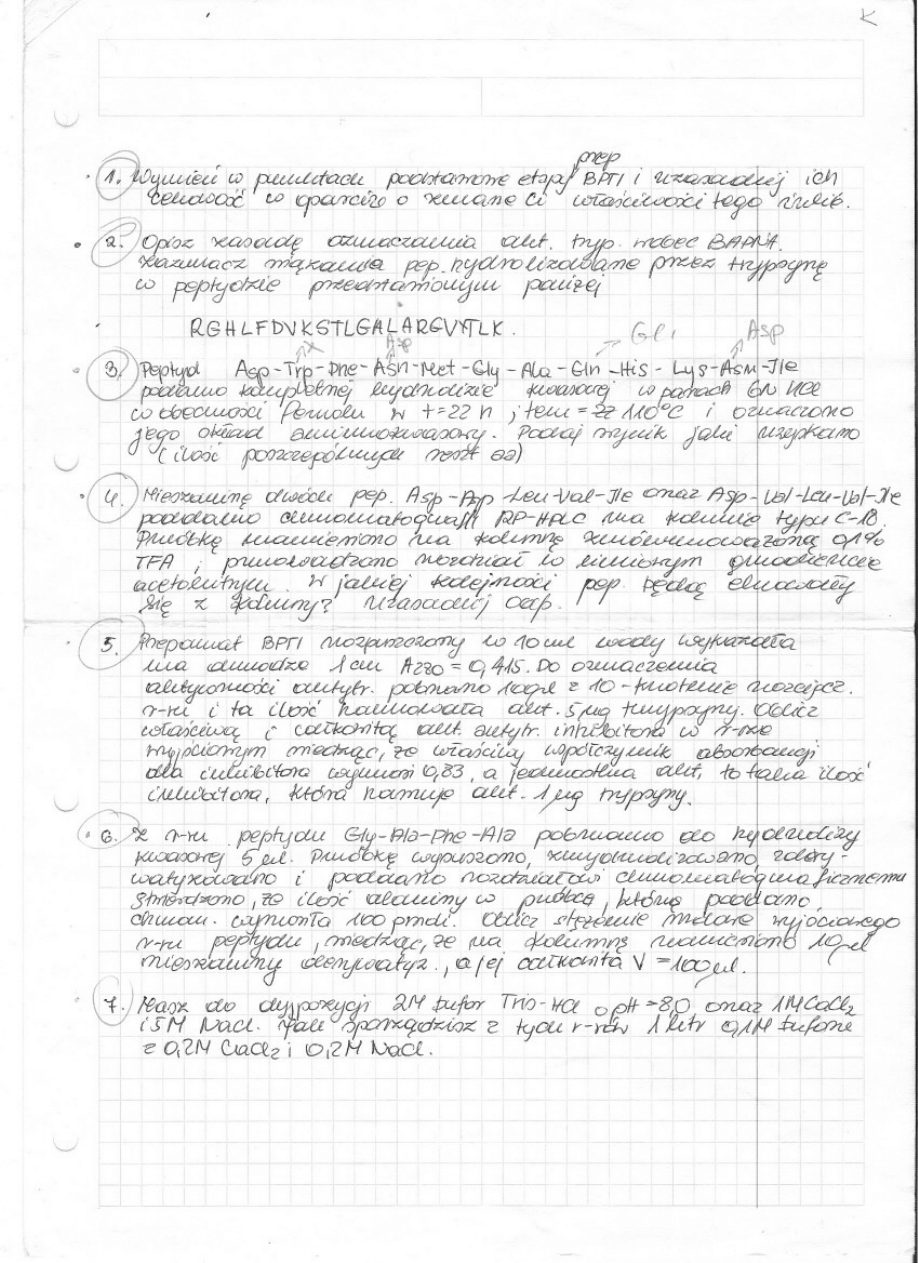 K
prep
1. Wymień w punktach podstawowe etapy BPTI i uzasadnij ich
celowość w oparciu o znane ci właściwości tego inhib.
2. Opisz zasadę oznaczania akt. tryp. wobec BAPNA.
zaznacz wiązania pep. hydrolizowane przez trypsynę
w peptydzie przedstawionym poniżej
RGHLFDVKSTLGALARGVYTLK.
x Asp Gli Asp
3. Peptyd Asp-Trp-Phe-Asn-Met-Gly-Ala-Gln-His-Lys-Asn-Ile
poddano kompletnej hydrolizie kwasowej w parach 6N HCl
w obecności fenolu w t=22 h, tem = 110°C i oznaczono
jego skład aminokwasowy. Podaj wynik jaki uzyskano
(ilość poszczególnych reszt aa)
4. Mieszaninę dwóch pep. Asp-Asp-Leu-Val-Ile oraz Asp-Val-Leu-Val-Ile
poddano chromatografii RP-HPLC na kolumnie typu C-18.
Próbkę naniesiono na kolumnę zrównoważoną 0,1%
TFA i prowadzono rozdział w liniowym gradiencie
acetonitrylu. W jakiej kolejności pep. będą eluowały
się z kolumny? Uzasadnij odp.
5. Preparat BPTI rozpuszczony w 10 ml wody wykazała
na drodze 1 cm A280 = 0,415. Do oznaczenia
aktywności antytr. pobrano 10 µl z 10-krotnie rozcieńcz.
r-ru i ta ilość hamowała akt. 5 µg trypsyny. Oblicz
właściwą i całkowitą akt. antytr. inhibitora w r-rze
wyjściowym wiedząc, że właściwy współczynnik absorbancji
dla inhibitora wynosi 0,83, a jednostka akt. to taka ilość
inhibitora, która hamuje akt. 1 µg trypsyny.
6. Z r-ru peptydu Gly-Ala-Phe-Ala pobrano do hydrolizy
kwasowej 5 µl. Próbkę wysuszono, zhydrolizowano, zdery-
watyzowano i poddano rozdziałowi chromatograficznemu
Stwierdzono, że ilość alaniny w próbce, którą poddano
chrom. wynosiła 100 pmoli. Oblicz stężenie molowe wyjściowego
r-ru peptydu, wiedząc, że na kolumnę naniesiono 10 µl
mieszaniny derywatyz., a jej całkowita V = 100 µl.
7. Masz do dyspozycji 2M bufor Tris-HCl o pH = 8,0 oraz 1M CaCl2
i 5M NaCl. Jak sporządzisz z tych r-rów 1 litr 0,1M buforu
z 0,2M CaCl2 i 0,2M NaCl.